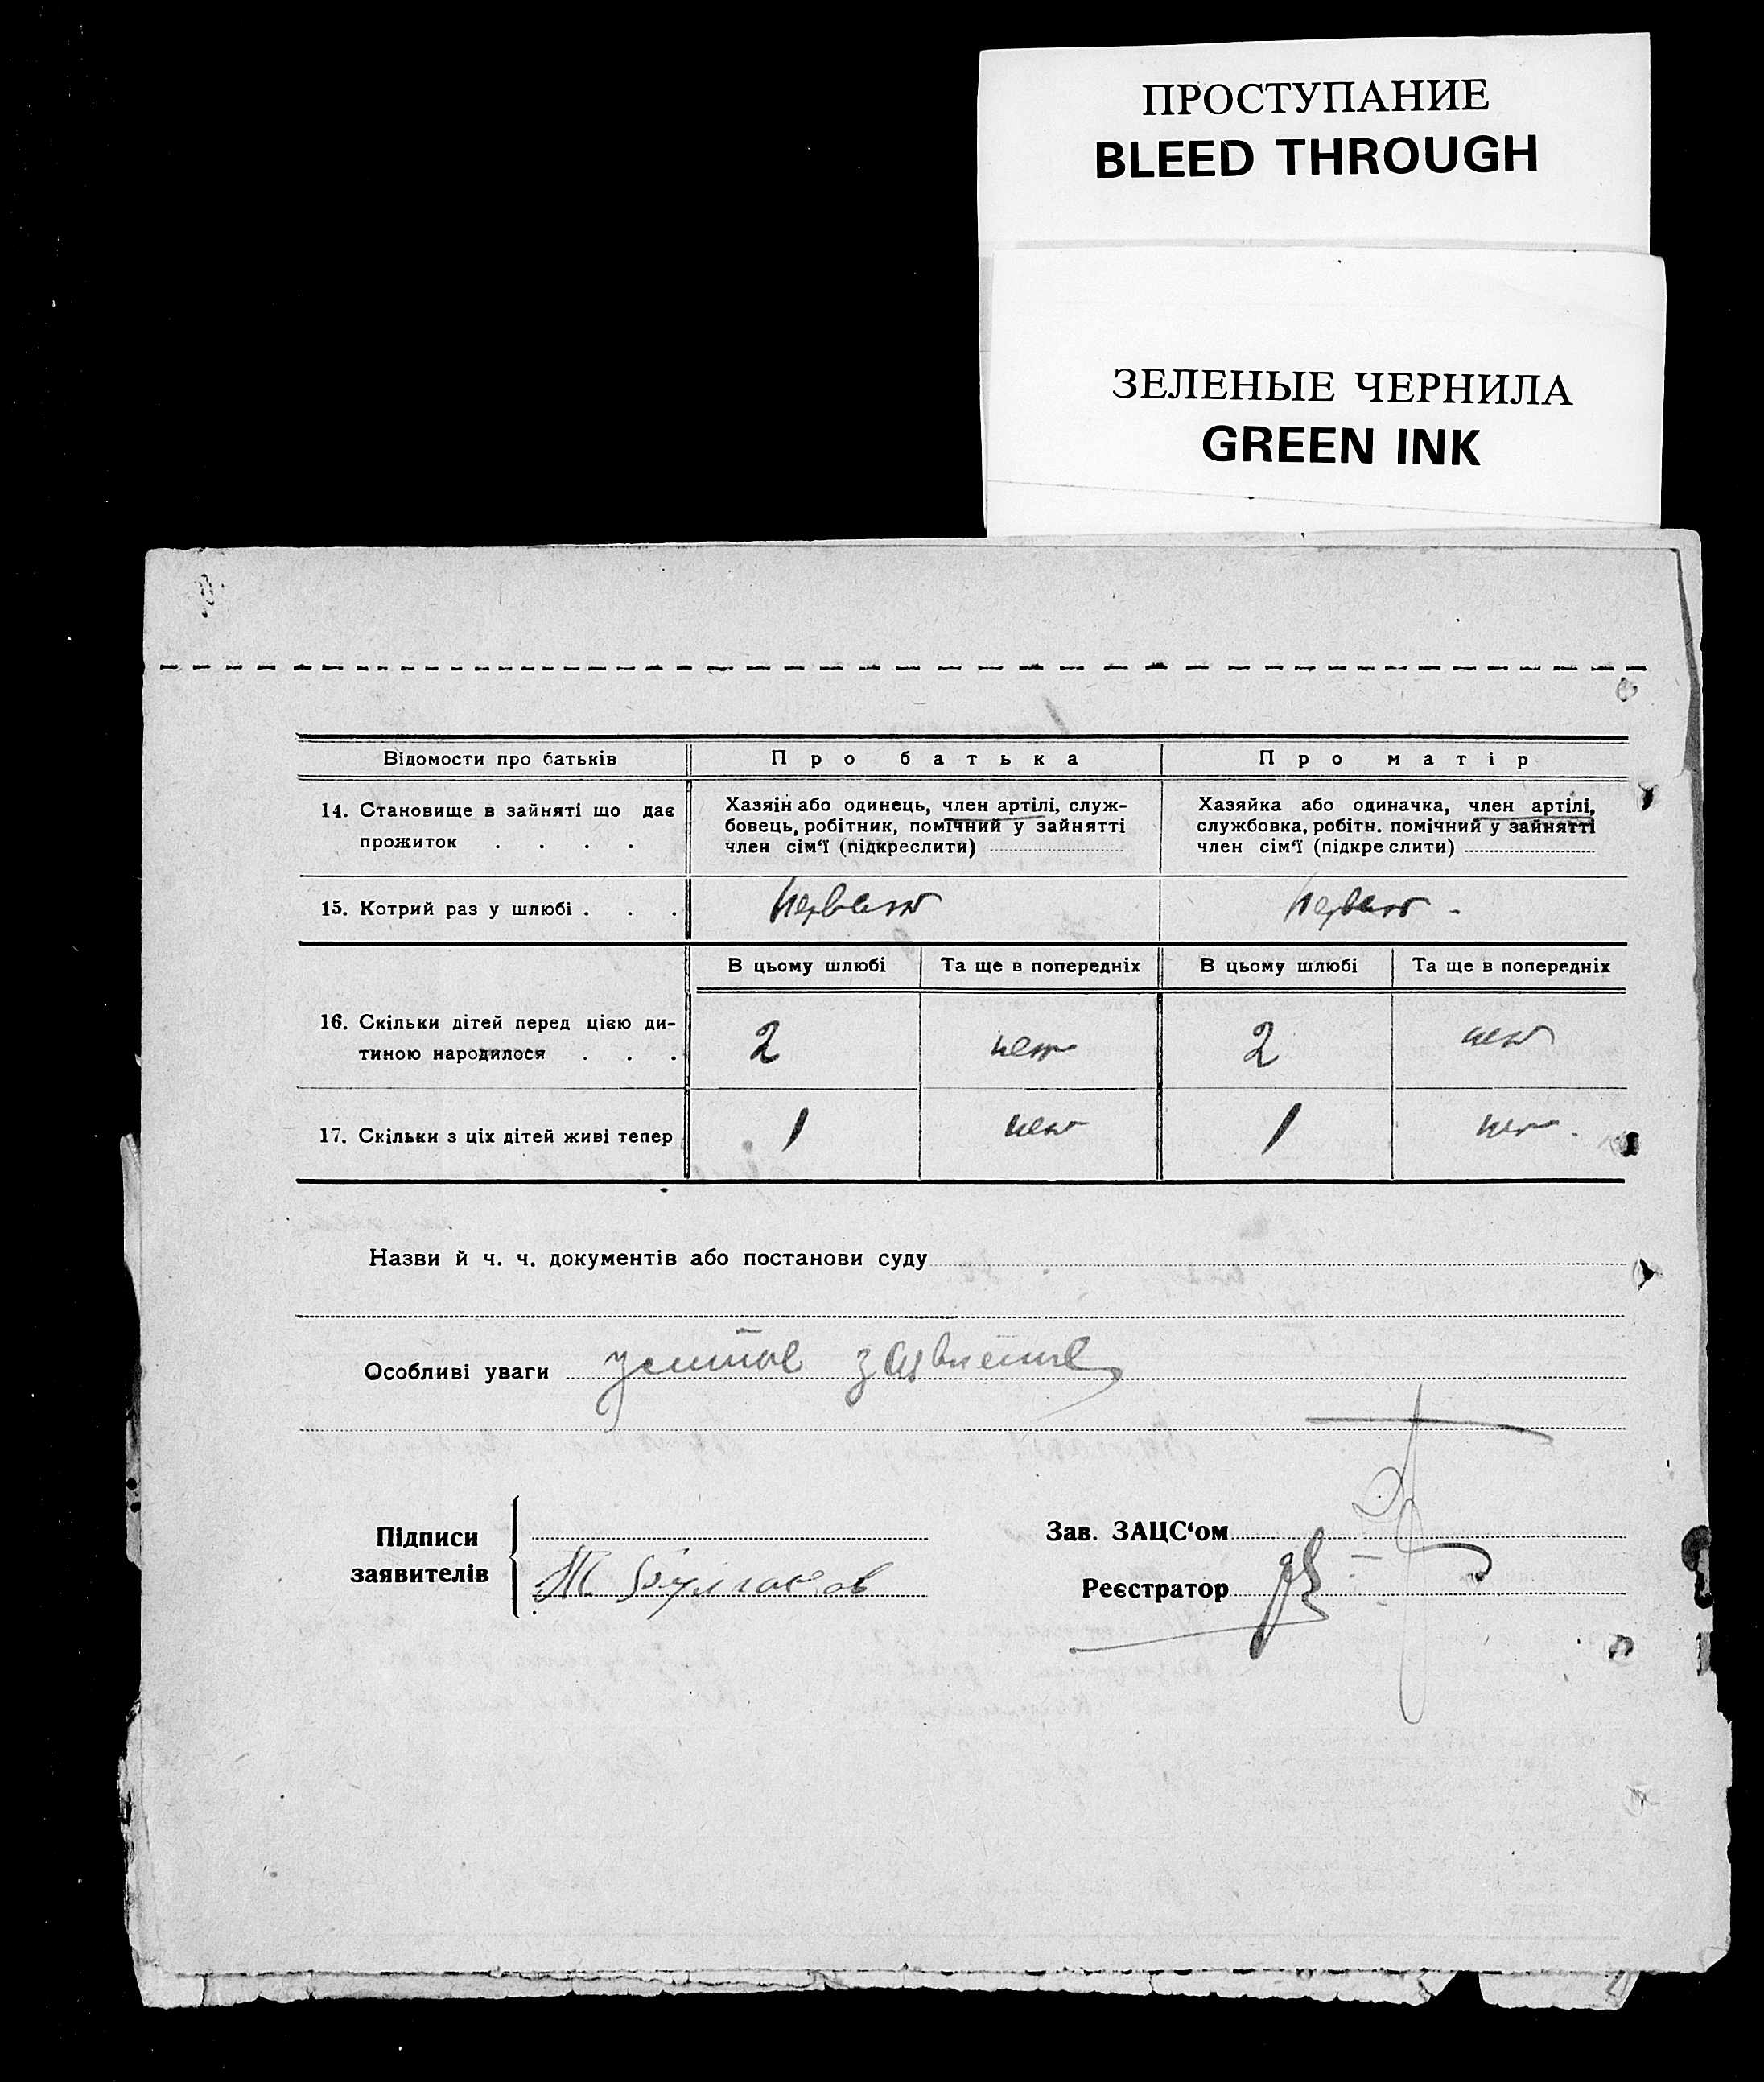 ПРОСТУПАНИЕ
BLEED THROUGH
ЗЕЛЕНЫЕ ЧЕРНИЛА
GREEN INK
Відомости про батьків Про батька Про матір
14. Становище в зайняті що дає прожиток . . . .
Хазяін або одинець, член артілі, служ-
бовець, робітник, помічний у зайнятті
член сім‘ї (підкреслити)
Хазяйка або одиначка, член артілі,
службовка, робітн. помічний у зайнятті
член сім‘ї (підкреслити)
15. Котрий раз у шлюбі . . . первый первый -
В цьому шлюбі Та ще в попередніх В цьому шлюбі Та ще в попередніх
16. Скільки дітей перед цією ди-
тиною народилося . . . 2 нет 2 нет
17. Скільки з ціх дітей живі тепер 1 нет 1 нет.
Назви й ч. ч. документів або постанови суду
Особливі уваги устное заявление
Підписи
заявителів
Булгаков
Зав. ЗАЦС‘ом
Реєстратор